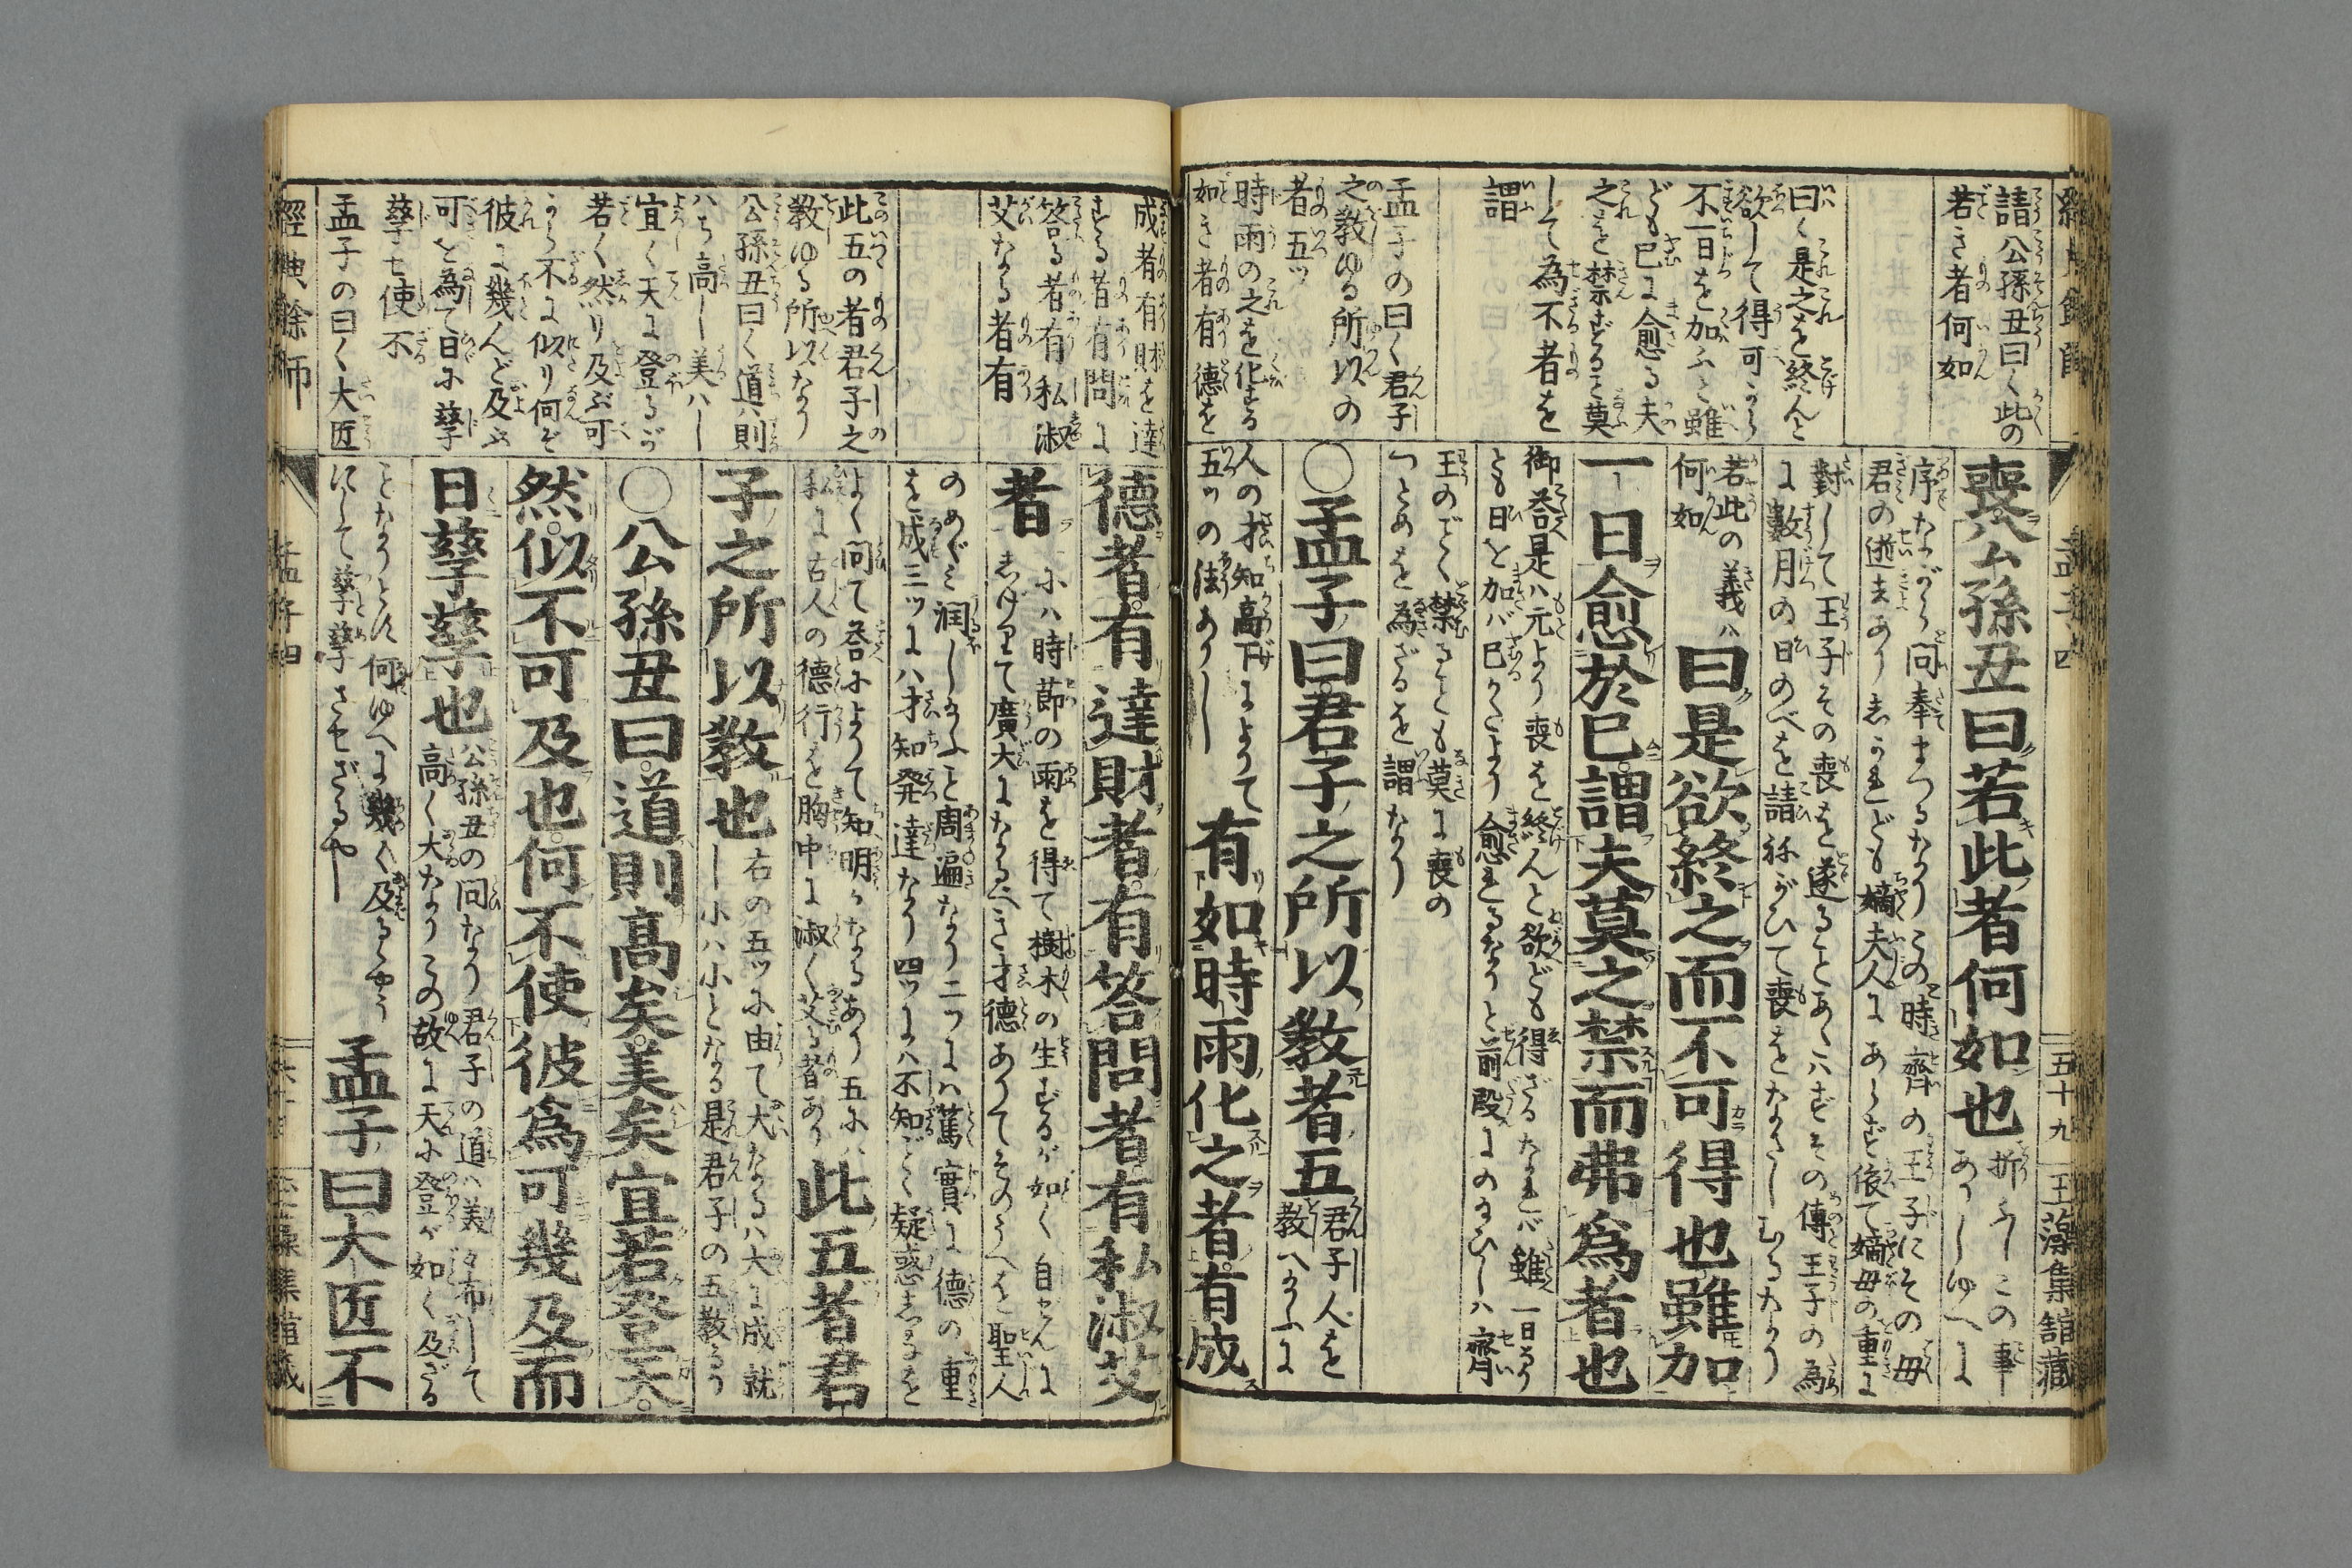 請公孫丑曰く此の
若き者何如
曰く是之を終んと
欲して得可から
不一日を加ふと雖
ども已に愈る夫
之を禁ずること莫
して為不者を
謂
孟子の曰く君子
之教ゆる所以の
者五ツ
時雨の之を化する
如き者有德を
喪公孫丑曰若此者何如也
折ふしこの事
ありしゆへに
序ながら問奉まつるなりこの時齊の王子にその母
君の逝去ありしかれども嫡夫人にあらず依て嫡母の重に
對して王子その喪を遂ることあたハずその傅王子の為
に數月の日のべを請ねがひて喪をなさしむるなり
若此の義ハ
何如
曰是欲終之而不可得也雖加
一日愈於已謂夫莫之禁而弗爲者也
御荅是ハ元より喪を終んと欲ども得ざるなれバ雖一日なり
とも日を加バ已くたより愈れるなりと前段にのたまひしハ齊
王のごとく禁ることも莫に喪の
つとめを為ざるを謂なり
〇孟子曰君子之所以敎者五
君子人を
教へたまふに
人の才知高下によりて
五ツの法あり
有如時雨化之者有成
成者有財を達
する者有問に
答る者有私淑
艾なる者有
此五の者君子之
敎ゆる所以なり
公孫丑曰く道ハ則
ハち高し美ハし
宜く天に登るが
若く然り及ぶ可
から不に似り何ぞ
彼に幾んど及ぶ
可を為て日に孳
孳せ使不
孟子の曰く大匠
德者有達財者有答問者有私淑艾
者
小ハ時節の雨を得て樹木の生ずるが如く自せんに
しげりて廣大になるべき才德ありてそのうへを聖人
のめぐミ潤したまふこと周遍なり二ツにハ篤實に德の重
を成三ツにハ才知発達なり四ツにハ不知ごく疑惑することを
よく問て荅によりて知明かなるあり五にハ
私に古人の德行を胸中に淑く艾る者あり
此五者君
子之所以敎也
右の五ツに由て大なるハ大に成就
し小ハ小となる是君子の五教なり
〇公孫丑曰道則高矣美矣宜若登天
然似不可及也何不使彼爲可幾及而
日孳孳也
公孫丑の問なり君子の道ハ美夕布して
高く大なりこの故に天に登が如く及ざる
ことなりとバ何ゆへに幾く及るやう
にして孳孳させざるや
孟子曰大匠不
經典餘師
孟子四
五十九
玉藻集館藏